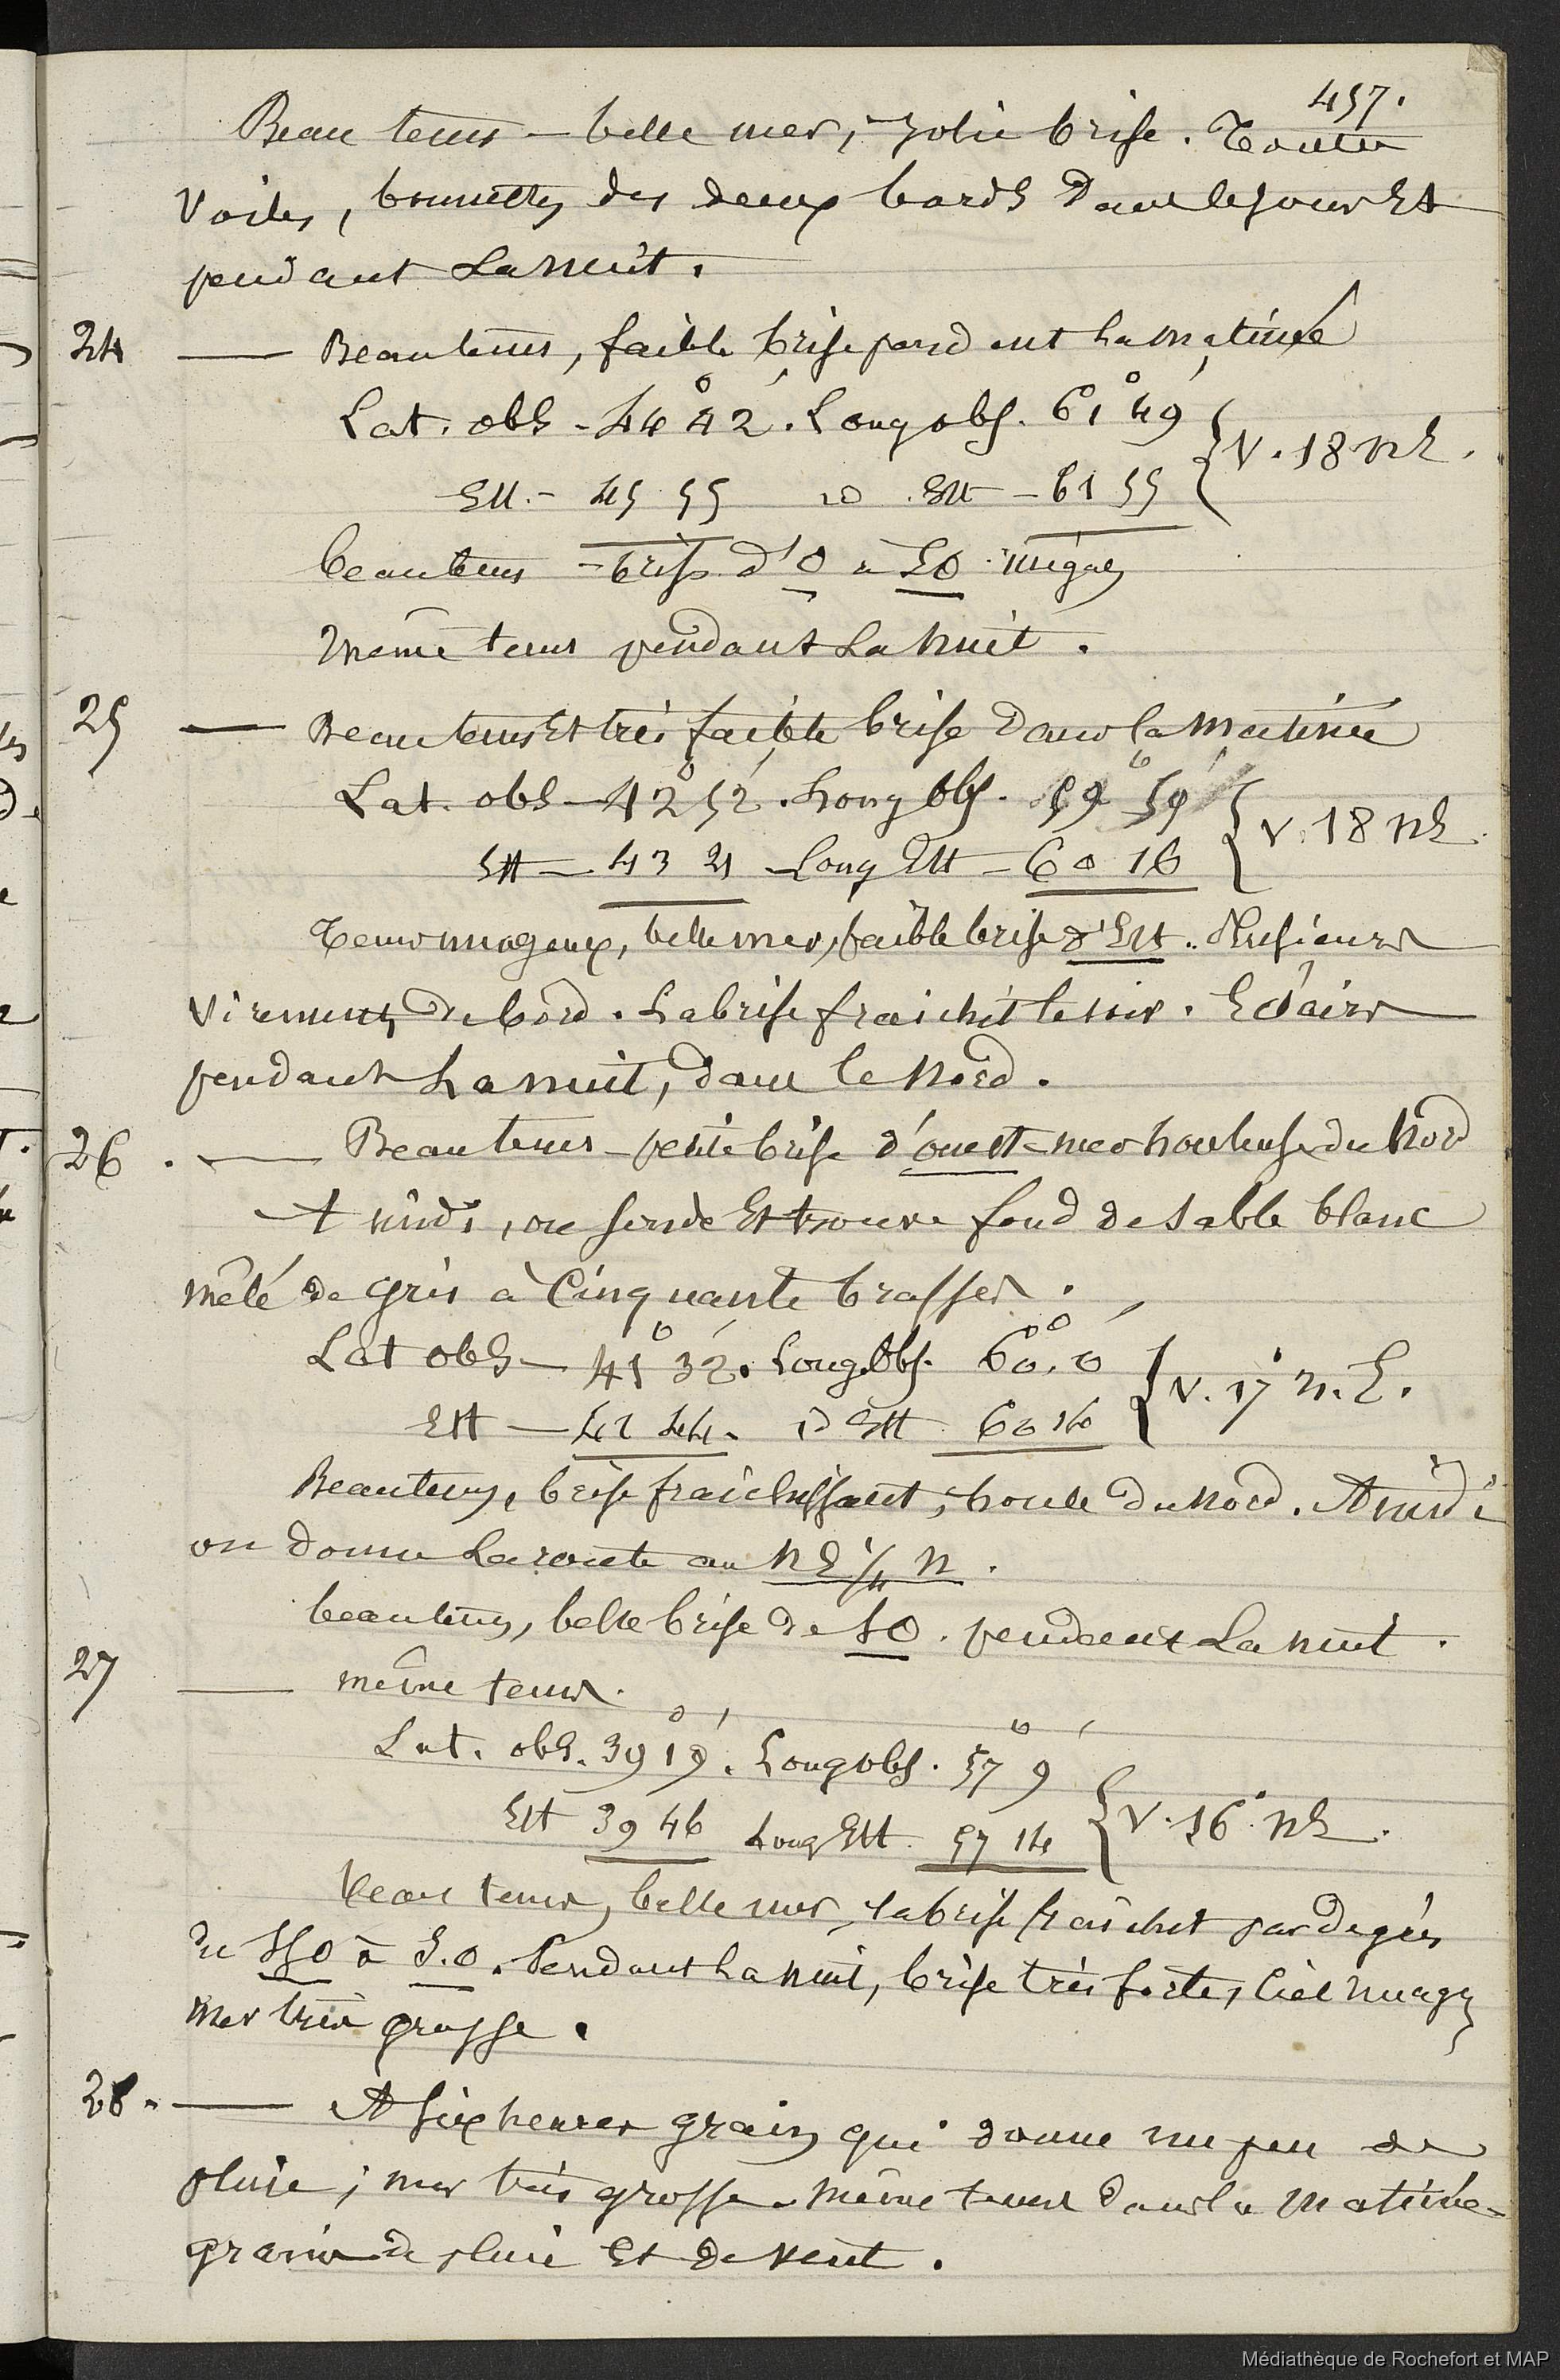 457.
Beau tems – belle mer, jolie brise. Toutes
Voiles, bonnettes des deux bords dans le jour Et
pendant La nuit.
24 — Beau tems, faible brise pendant La matinée
Lat. obs - 44° 42'. Long obs. 61° 49'
Est. - 45 55 id Est - 61 55 } V. 18 NE.
beau tems - brise d'O à SO. inégale
même tems pendant La Nuit.
25 — Beau tems Et très faible brise dans la Matinée
Lat. obs - 42° 52'. Long Obs. 59° 59'
Est - 43 21 - Long Est - 60 16 } V. 18 NE.
Tems nuageux, belle mer, faible brise d'Est. Plusieurs
Virements de bord. La brise fraichit le soir. Eclairs
pendant La nuit, dans le Nord.
26. — Beau tems - petite brise d'ouest - mer houleuse du Nord
A midi, on sonde Et trouve fond de sable blanc
mêlé de gris à Cinquante brasses.
Lat obs - 41° 32'. Long. Obs. 60° 0'
Est - 41 44. id Est 60 14 } V. 17° N. E.
Beau tems, brise fraichissant, houle du Nord. A midi
on donne La route au NE 1/4 N.
beau tems, belle brise de SO. pendant La nuit.
27 — même tems.
Lat. obs. 39° 19'. Long obs. 57° 9'
Est 39 46 Long Est. 57 14 } V. 16° NE.
Beau tems, belle mer, la brise fraichit par degrés
du SSO à S.O. Pendant La nuit, brise très forte, Ciel nuageux
mer très grosse.
28. — A six heures grains qui donne un peu de
pluie; mer très grosse. même tems dans la Matinée -
grains de pluie Et de vent.
Médiathèque de Rochefort et MAP